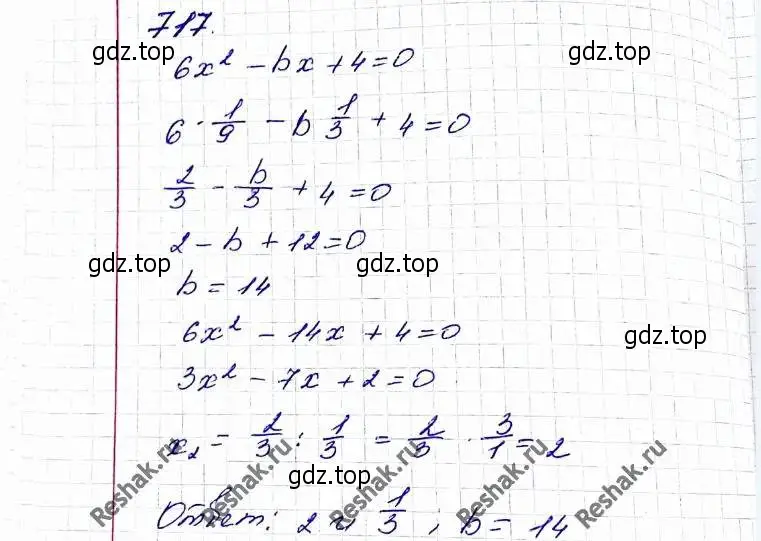 717.
gdz.top gdz.top
6x² - bx + 4 = 0
6 · 1/9 - b 1/3 + 4 = 0
2/3 - b/3 + 4 = 0
2 - b + 12 = 0
gdz.top gdz.top
b = 14
6x² - 14x + 4 = 0
gdz.top
3x² - 7x + 2 = 0
x₂ = 2/3 : 1/3 = 2/3 · 3/1 = 2
Reshak.ru Reshak.ru Reshak.ru
gdz.top
Ответ: 2 и 1/3 ; b = 14
gdz.top gdz.top